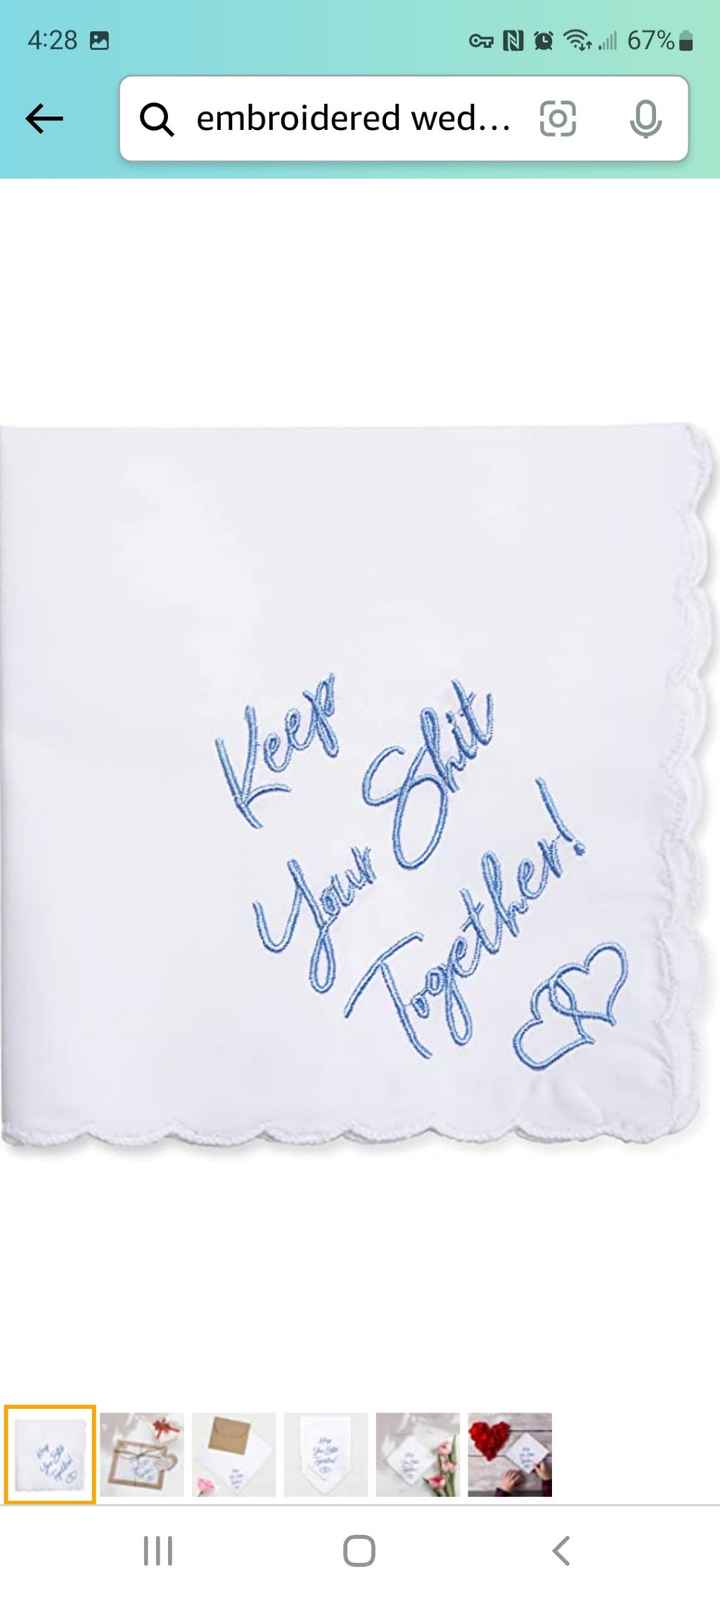 4:28 67%
embroidered wed...
Keep
Your Shit
Together!